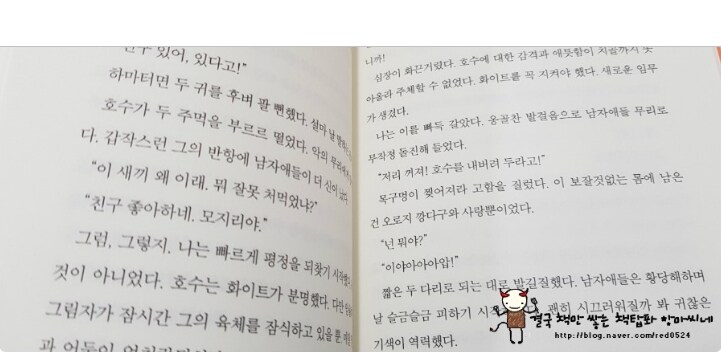 있어, 있다고!”
하마터면 두 귀를 후벼 팔 뻔했다. 설마 날
호수가 두 주먹을 부르르 떨었다. 악의
다. 갑작스런 그의 반항에 남자애들이 더 신이
“이 새끼 왜 이래. 뭐 잘못 처먹었나?”
“친구 좋아하네. 모지리야.”
그럼, 그렇지. 나는 빠르게 평정을 되찾기
것이 아니었다. 호수는 화이트가 분명했다. 다만
그림자가 잠시간 그의 육체를 잠식하고 있을 뿐
과 어둠이
니까!
심장이 화끈거렸다. 호수에 대한 감격과 애틋함이
아올라 주체할 수 없었다. 화이트를 꼭 지켜야 했다. 새로운 임무
가 생겼다.
나는 이를 빠득 갈았다. 옹골찬 발걸음으로 남자애들 무리로
무작정 돌진해 들었다.
“저리 꺼져! 호수를 내버려 두라고!”
목구멍이 찢어져라 고함을 질렀다. 이 보잘것없는 몸에 남은
건 오로지 깡다구와 사랑뿐이었다.
“넌 뭐야?”
“이야아아아압!”
짧은 두 다리로 되는 대로 발길질했다. 남자애들은 황당해하며
날 슬금슬금 피하기 괜히 시끄러워질까 봐 귀찮은
기색이 역력했다.
결국 책만 쌓는 책탑와 항마씨네
http://blog.naver.com/red0524